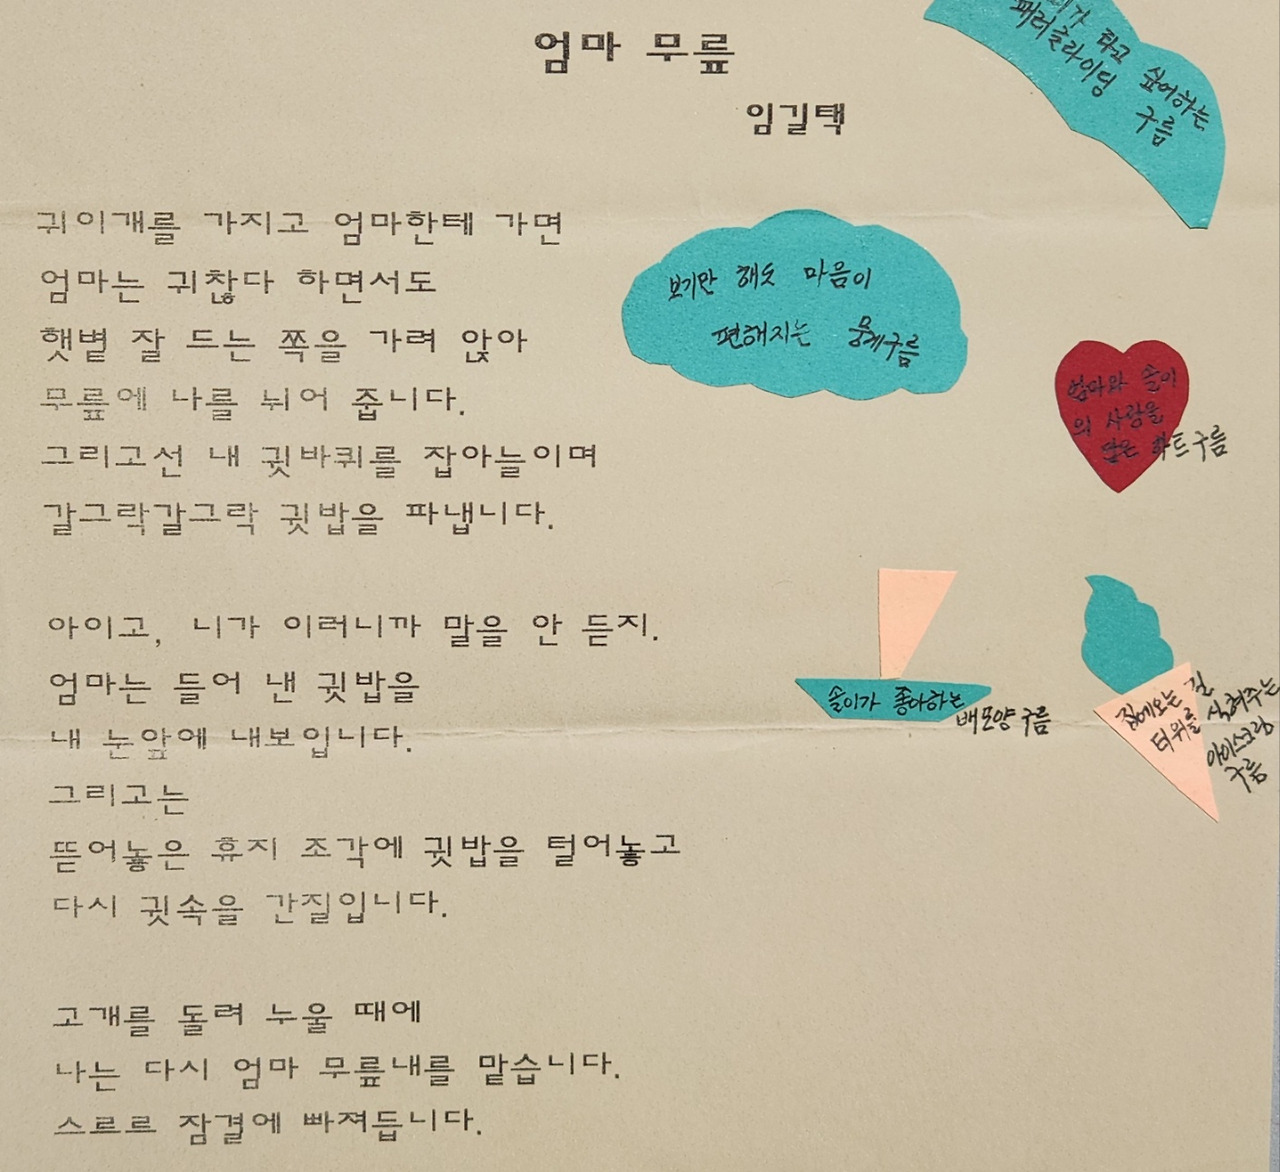 엄마 무릎
임길택
귀이개를 가지고 엄마한테 가면
엄마는 귀찮다 하면서도
햇볕 잘 드는 쪽을 가려 앉아
무릎에 나를 뉘어 줍니다.
그리고선 내 귓바퀴를 잡아늘이며
갈그락갈그락 귓밥을 파냅니다.
아이고, 니가 이러니까 말을 안 듣지.
엄마는 들어 낸 귓밥을
내 눈앞에 내보입니다.
그리고는
뜯어놓은 휴지 조각에 귓밥을 털어놓고
다시 귓속을 간질입니다.
고개를 돌려 누울 때에
나는 다시 엄마 무릎내를 맡습니다.
스르르 잠결에 빠져듭니다.
타고 싶어하는
패러글라이딩 구름
보기만 해도 마음이
편해지는 뭉게구름
엄마와 솔이
의 사랑을
담은 하트구름
솔이가 좋아하는
배모양 구름
집에오는 길
더위를 식혀주는
아이스크림
구름